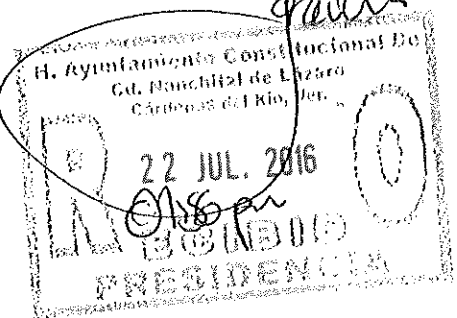 H. Ayuntamiento Constitucional De
Cd. Nanchital de Lázaro
Cárdenas del Río, Ver.
22 JUL. 2016
RECIBIDO
PRESIDENCIA